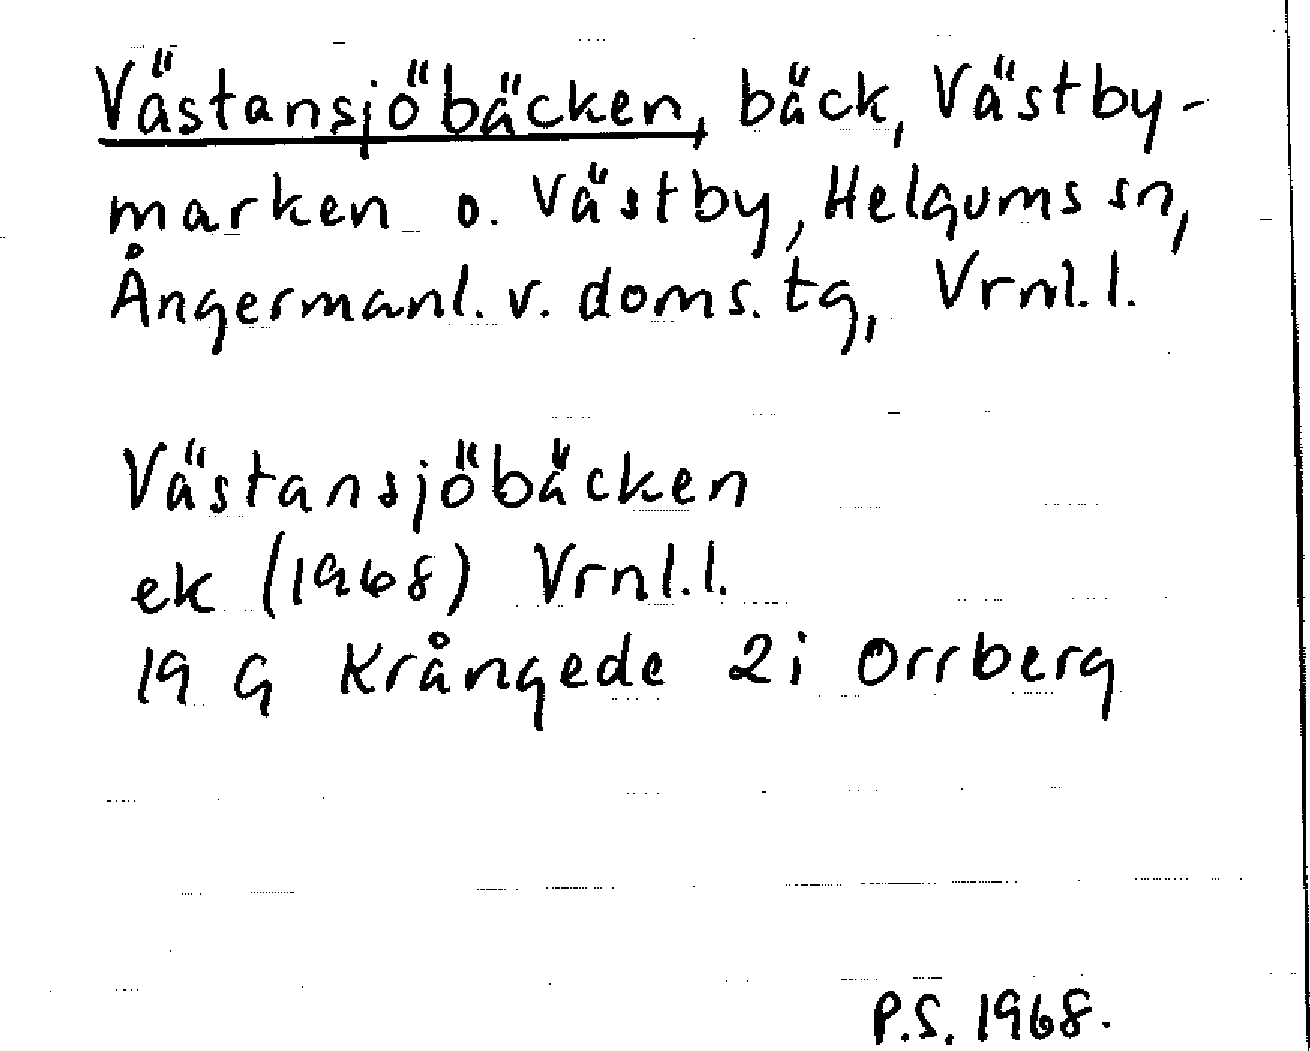 Västansjöbäcken, bäck, Västby-
marken o. Västby, Helgums sn,
Ångermanl. v. doms. tg, Vrnl. l.
Västansjöbäcken
ek (1968) Vrnl. l.
19 G Krångede 2i Orrberg
P.S. 1968.